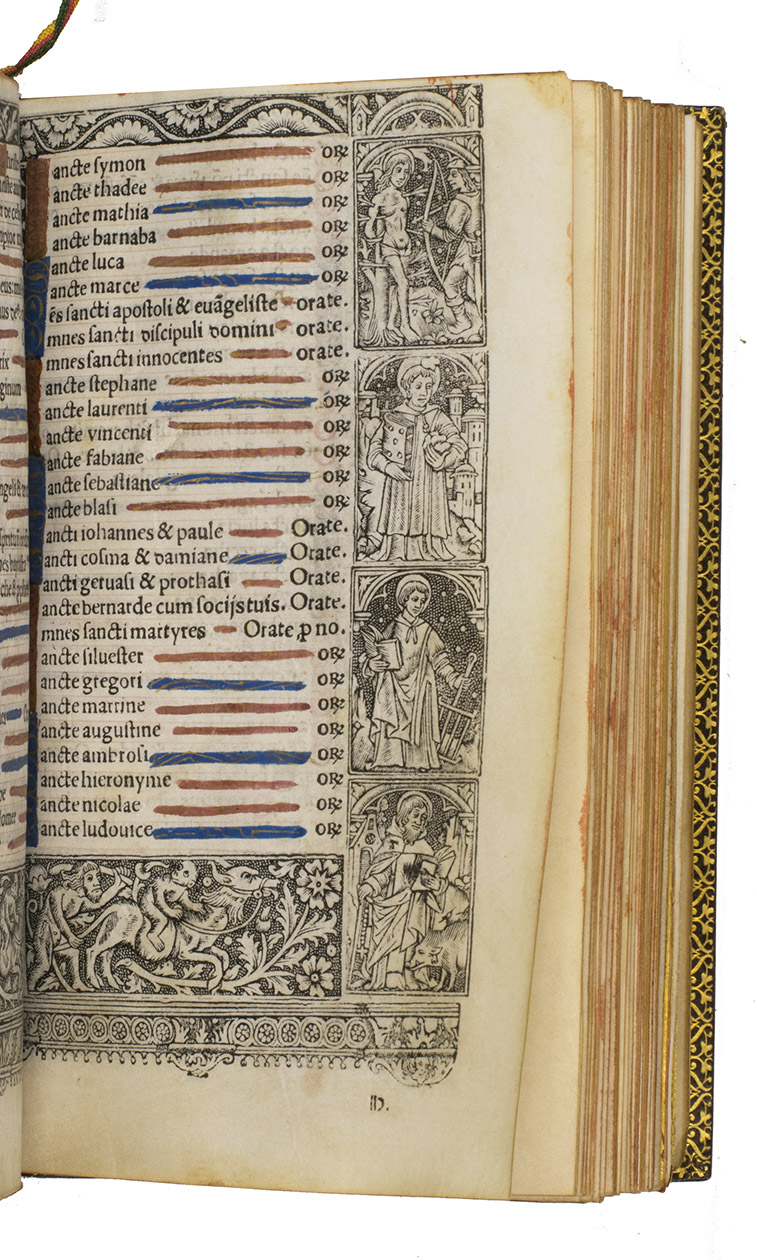 ancte symon ORꝫ
ancte thadee ORꝫ
ancte mathia ORꝫ
ancte barnaba ORꝫ
ancte luca ORꝫ
ancte marce ORꝫ
ẽs sancti apostoli & euãgeliste orate.
mnes sancti discipuli domini orate.
mnes sancti innocentes orate.
ancte stephane ORꝫ
ancte laurenti ORꝫ
ancte vincenti ORꝫ
ancte fabiane ORꝫ
ancte sebastiane ORꝫ
ancte blasi ORꝫ
ancti iohannes & paule Orate.
ancti cosma & damiane Orate.
ancti geruasi & prothasi Orate.
ancte bernarde cum socijs tuis. Orate.
mnes sancti martyres Orate ꝓ no.
ancte siluester ORꝫ
ancte gregori ORꝫ
ancte martine ORꝫ
ancte augustine ORꝫ
ancte ambrosi ORꝫ
ancte hieronyme ORꝫ
ancte nicolae ORꝫ
ancte ludouice ORꝫ